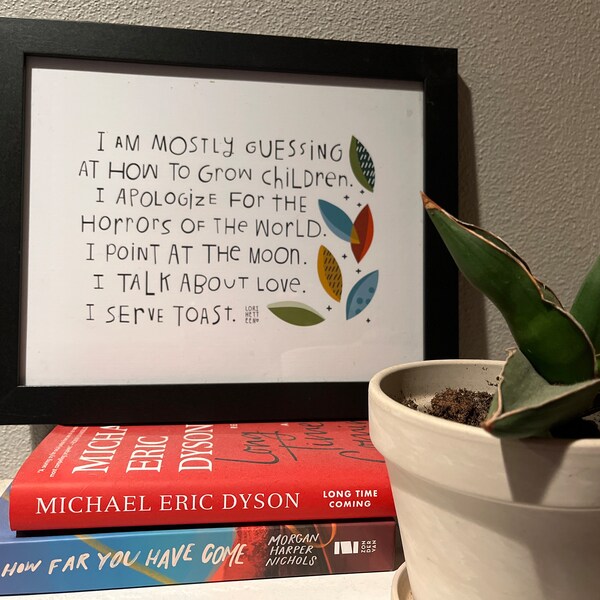 I AM MOSTLY GUESSING
AT HOW TO GROW CHILDREN.
I APOLOGIZE FOR THE
HORRORS OF THE WORLD.
I POINT AT THE MOON.
I TALK ABOUT LOVE.
I SERVE TOAST.
LORI
HETT
EEN
MICHA
ERIC
DYSON
Long
Time
MICHAEL ERIC DYSON
LONG TIME
COMING
HOW FAR YOU HAVE COME
MORGAN
HARPER
NICHOLS
ZON
DER
VAN